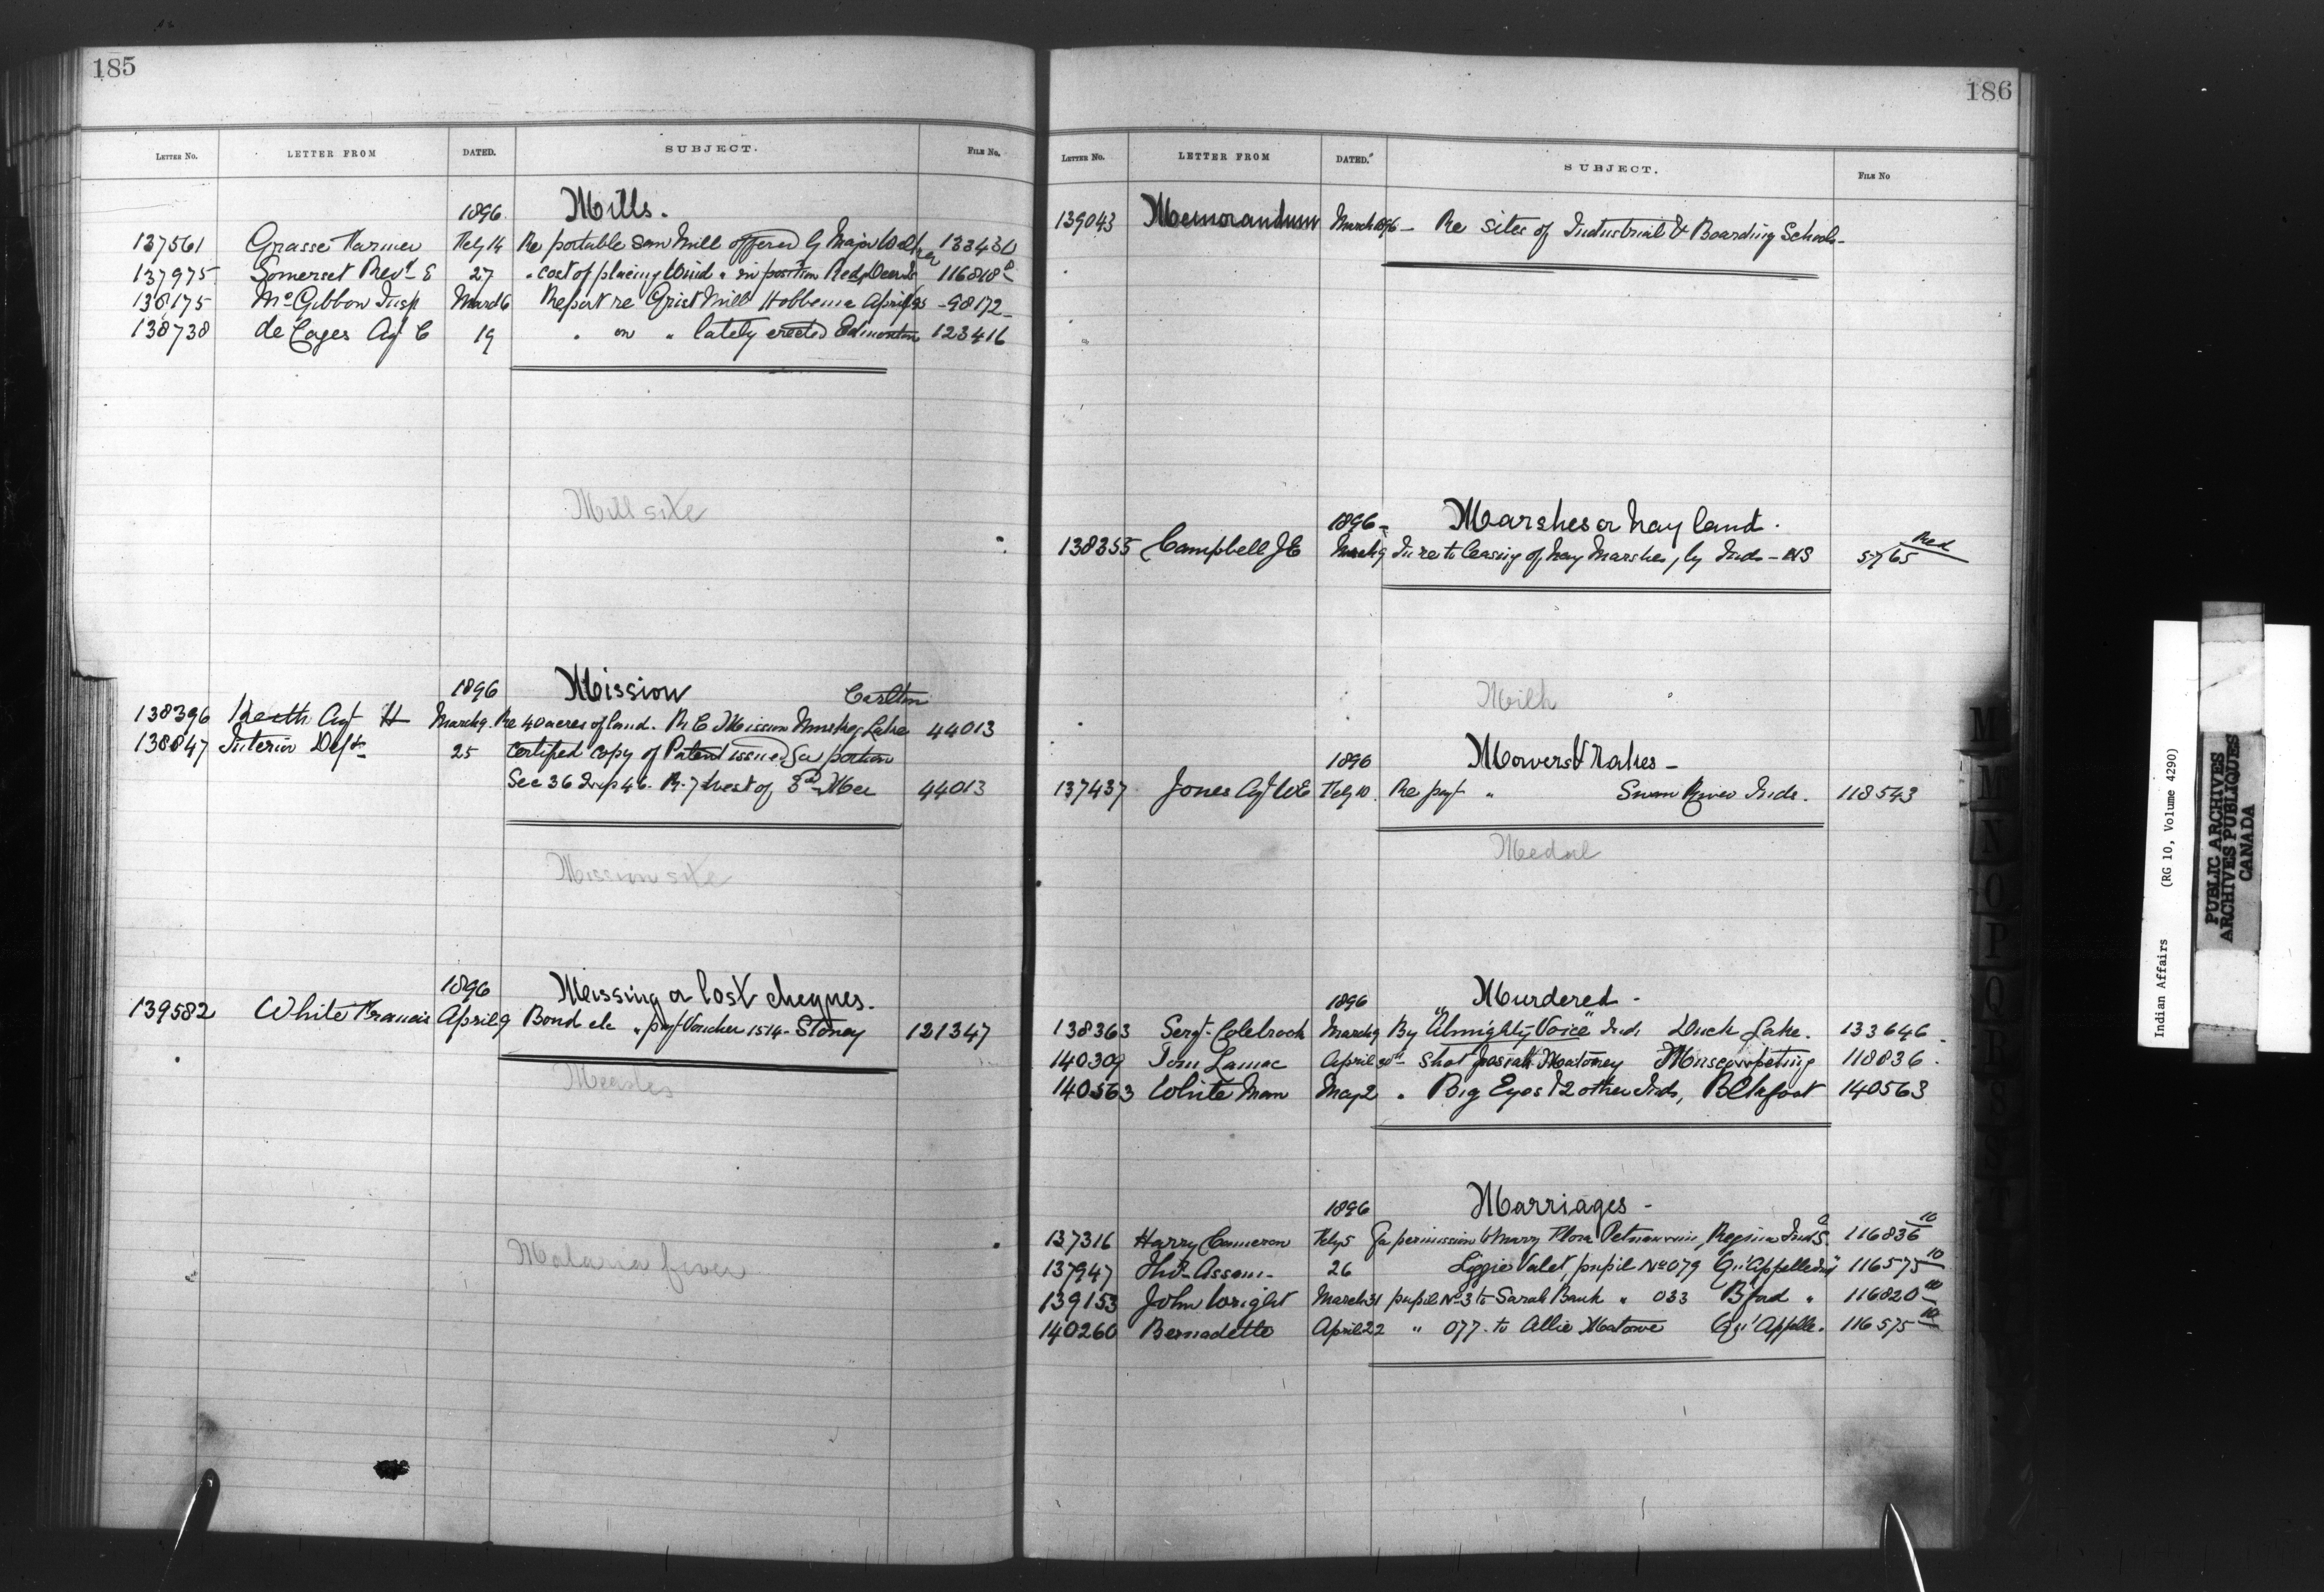 185
LETTER No. LETTER FROM DATED. SUBJECT. FILE No.
1896. Mills.
137561 Grasse Farmer Feby 14 Re portable Saw Mill offered by Major Walker 133430
137975 Somerset Revd E 27 " cost of placing Wind " in position Red Deer 116818
138175 McGibbon Insp March 6 Report re Grist Mill Hobbema April/95 - 98172 -
138738 de Cages Agt C 19 " on " lately erected Edmonton 123416
Mill site
1896 Mission Carlton
138396 Keith Agt H March 9. Re 40 acres of land. R C Mission Muskeg Lake 44013
138847 Interior Dept 25 Certified copy of Patent issued for portion
Sec 36 Twp 46. R. 7 West of 3rd Mer 44013
Mission site
1896 Missing or lost cheques.
139582 White Francis April 9 Bond etc " pay Voucher 1514 - Stoney 121347
Measles
Malaria fever
186
LETTER No. LETTER FROM DATED. SUBJECT. FILE No
139043 Memorandum March 1896 - Re Sites of Industrial & Boarding Schools -
1896 - Marshes or hay land.
138355 Campbell J E March 9 In re to leasing of hay Marshes, by Inds - NS 5765 Red
Milk
1896 Mowers & rakes -
137437 Jones Agt W E Feby 10. Re " Swan River Inds. 118543
Medal
1896 Murdered -
138363 Sergt. Colebrook March 9 By "Almighty Voice" Ind Duck Lake. 133646
140309 Tom Lamac April 30th - Shot Matoney Muscowpetung 118836.
140563 White Man May 2 " Big Eyes & 2 other Inds, Blkfoot 140563
1896 Marriages -
137316 Harry Cameron Feby 5 for permission to marry Flora Regina Ind S. 116836 10
137947 Thos Assom - 26 Lizzie Valet, pupil No 079 Qu'Appelle Ind 116575 10
139153 John Wright March 31 pupil No 3 to Sarah Bank " 033 Bfad " 116820 10
140260 Bernadette April 22 " 077 - to Allie Matowe Qu'Appelle. 116575 10
M
N
O
P
Q
R
S
Indian Affairs (RG 10, Volume 4290)
PUBLIC ARCHIVES
ARCHIVES PUBLIQUES
CANADA